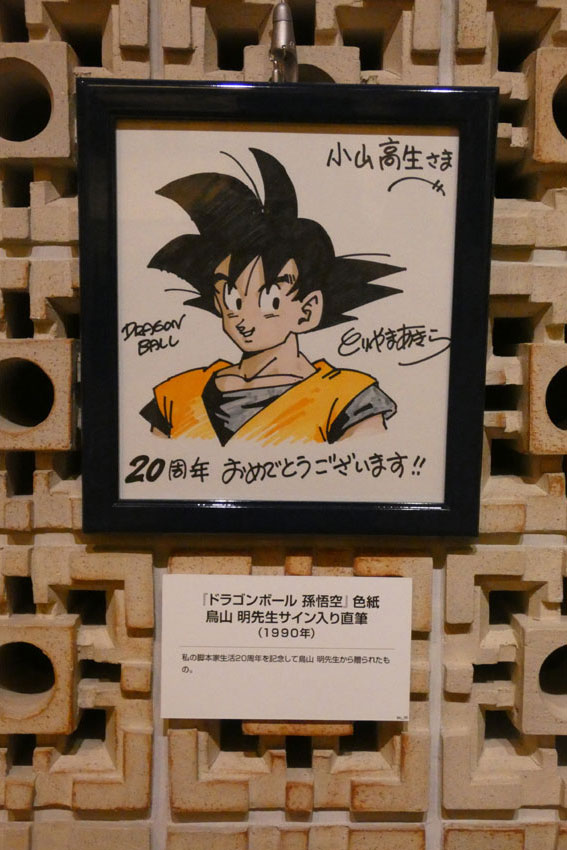 小山高生さま
DRAGON
BALL
とりやまあきら
20周年 おめでとうございます!!
『ドラゴンボール 孫悟空』色紙
鳥山 明先生サイン入り直筆
（1990年）
私の脚本家生活20周年を記念して鳥山 明先生から贈られたも
の。